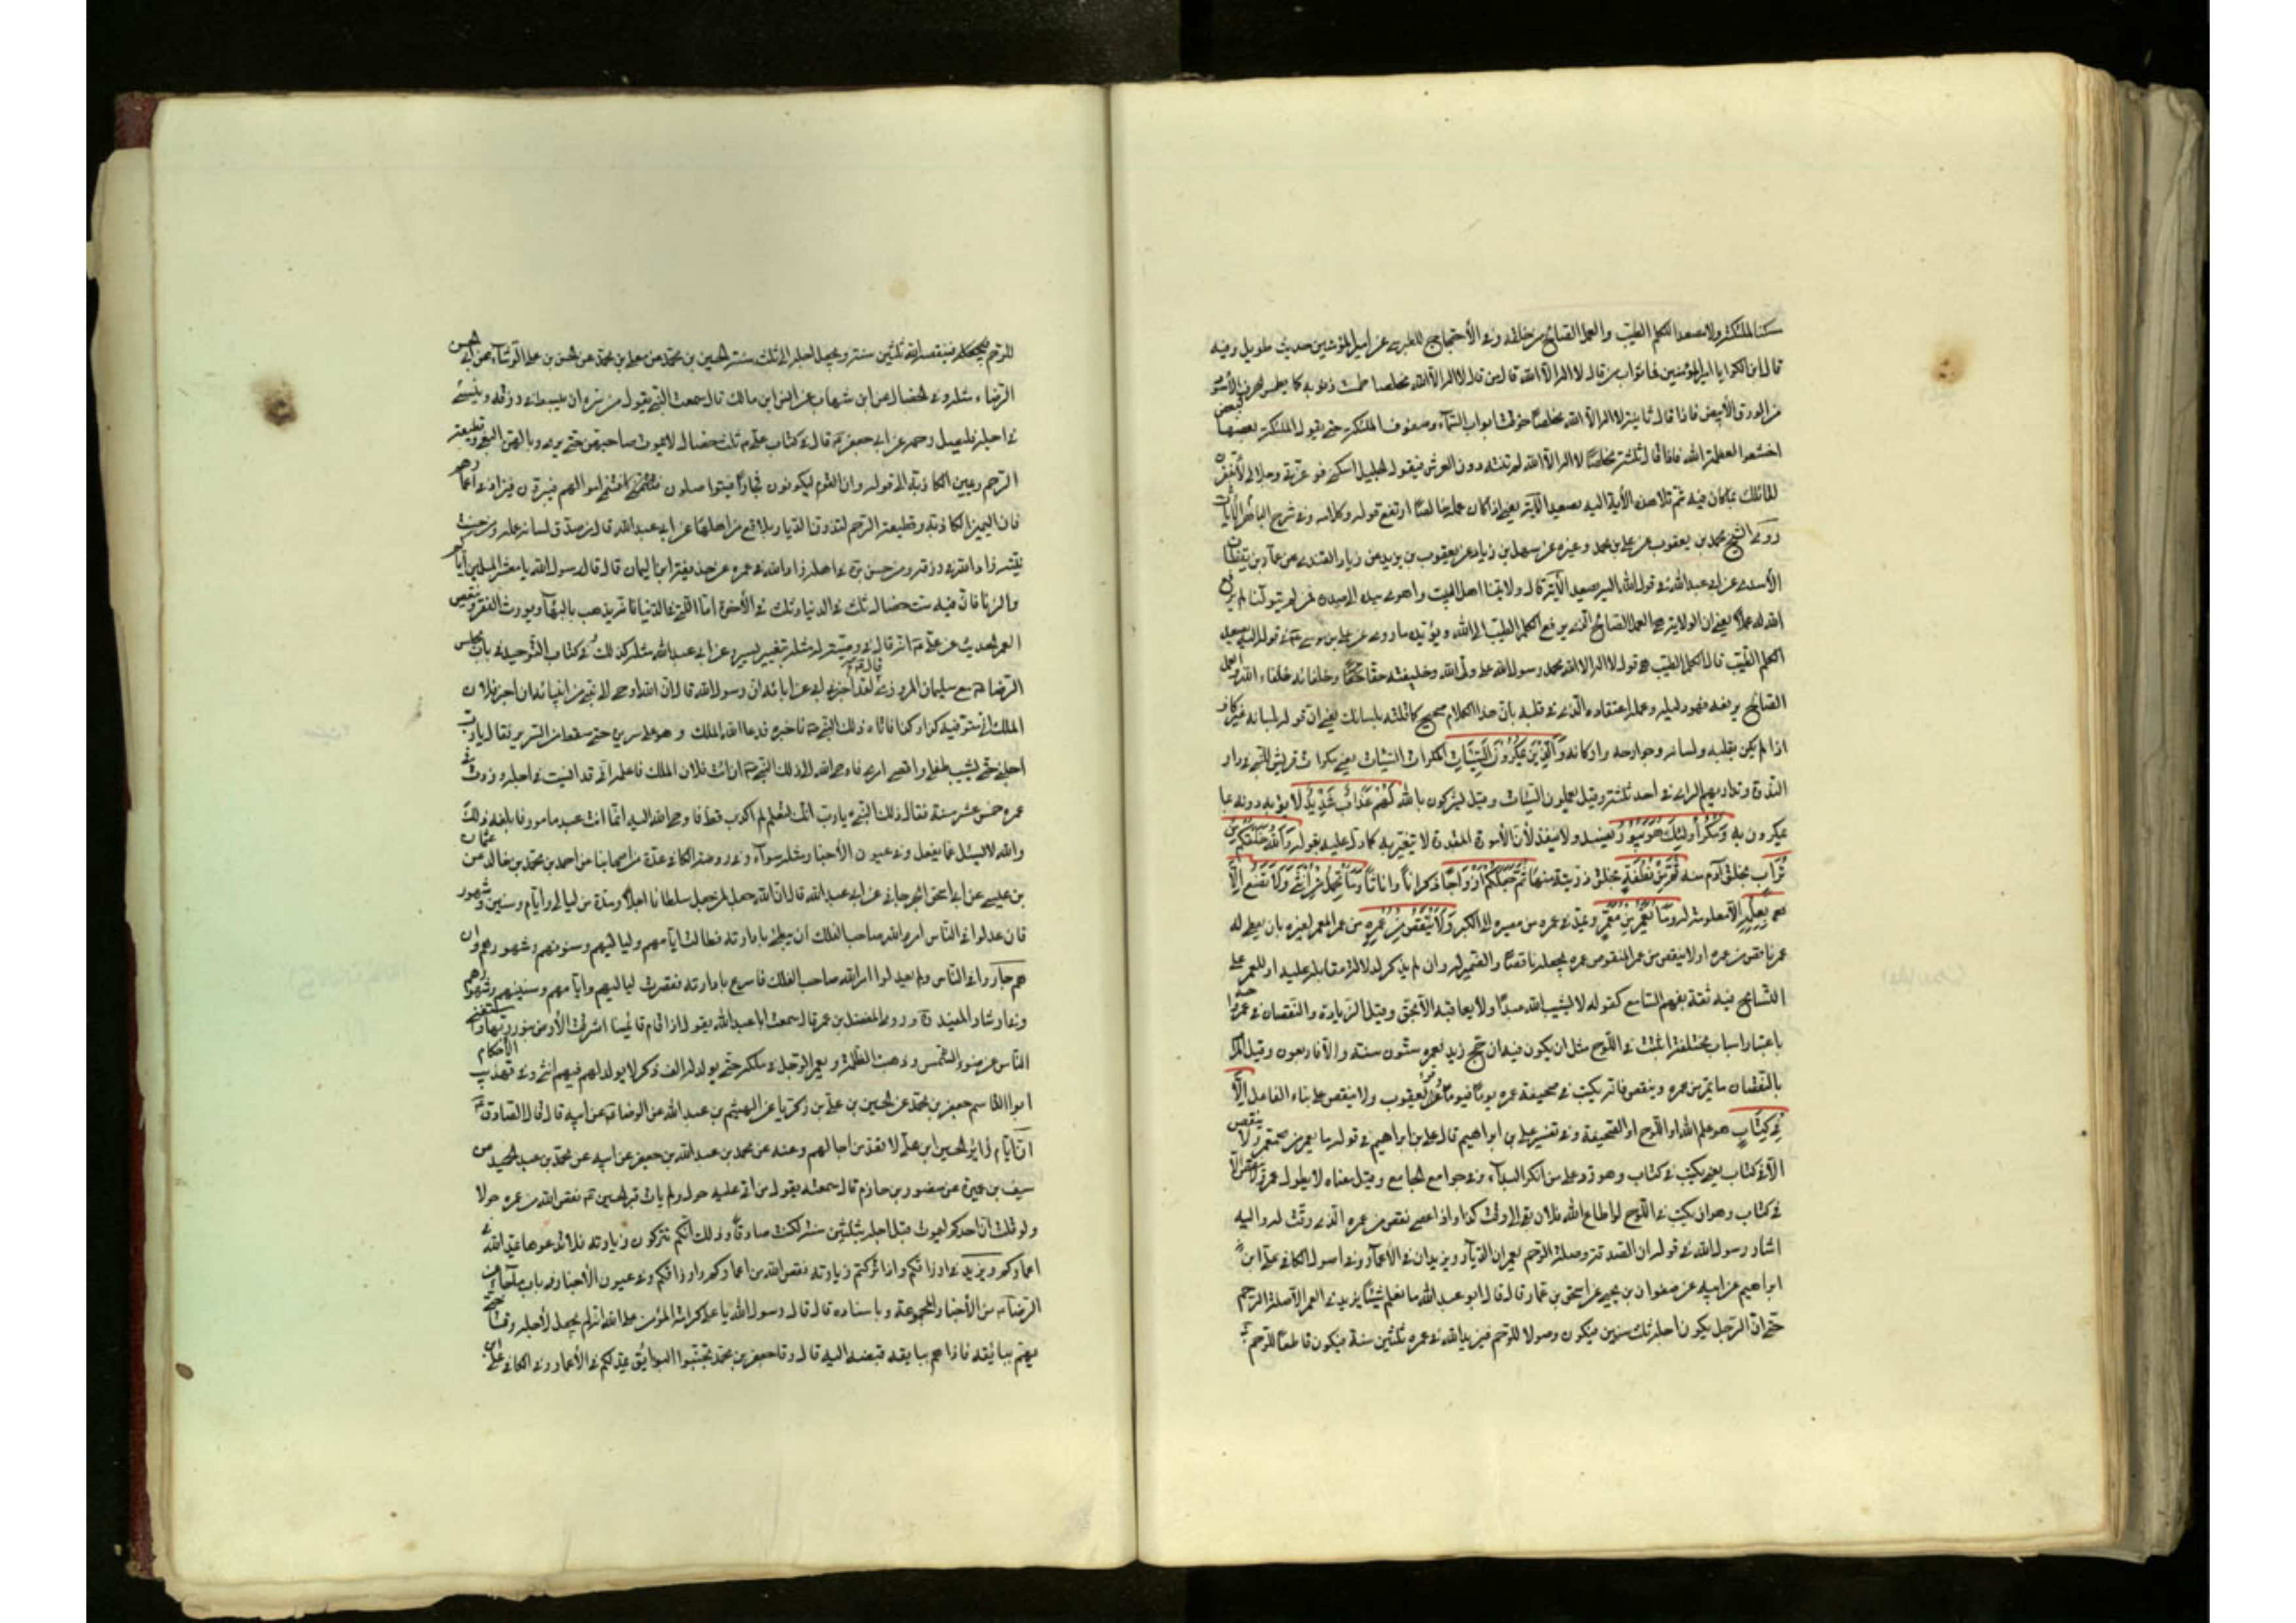 سكنا الملئكة ولا يصعد الكلم الطيب والعمل الصالح من خلقه وفى الأحتجاج للطبرسى عن امير المؤمنين حديث طويل وفيه
قال ابن الكوا يا امير المؤمنين فما ثواب من قال لا اله الا الله قال من قال لا اله الا الله مخلصا طمست ذنوبه كما يطمس الحرف الأسود
من الورق الأبيض فاذا قال ثانية لا اله الا الله مخلصا خرقت ابواب السماء وصفوف الملئكة حتى يقول الملئكة بعضها لبعض
اخشعوا لعظمة الله فاذا قال ثلثة مخلصا لا اله الا الله لم تنته دون العرش فيقول الجليل اسكنى فوعزتى وجلالى لأغفرن
لقائلك بما كان فيه ثم تلا هذه الأية اليه يصعد الآية يعنى اذا كان عمله خالصا ارتفع قوله وكلامه وفى شرح الأيات
روى الشيخ محمد بن يعقوب عن على بن محمد وغيره عن سهل بن زياد عن يعقوب بن يزيد عن زياد القندى عن عمار بن يقظان
الأسدى عن ابى عبدالله فى قول الله اليه يصعد الأية قال ولايتنا اهل البيت واهوى بيده الى صدره فمن لم يتولنا لم يرفع
الله له عملا يعنى ان الولاية هى العمل الصالح الذى يرفع الكلم الطيب الى الله ويؤيده ما روى عن على بن موسى فى قوله اليه يصعد
الكلم الطيب قال الكلم الطيب هو قول لا اله الا الله محمد رسول الله على ولى الله وخليفته حقا وخلفائه خلفاء الله والعمل
الصالح يرفعه فهو دليله وعمله اعتقاده الذى فى قلبه بان هذا الكلام صحيح كما قلته بلسانك يعنى ان قوله بلسانه غير كاف
اذا لم يكن بقلبه ولسانه وجوارحه واركانه وَالَّذِينَ يَمْكُرُونَ السَّيِّئَاتِ المكرات السيئات يعنى مكرات قريش للنبى فى دار
الندوة وتداورهم الراى فى احد ثلثة وقيل يعملون السيئات وقيل يشركون بالله لَهُمْ عَذَابٌ شَدِيدٌ لا يؤبه دونه بما
يمكرون به وَمَكْرُ أُولَئِكَ هُوَ يَبُورُ يفسد ولا ينفذ لأن الأمور المقدرة لا تتغير به كما دل عليه بقوله وَاللَّهُ خَلَقَكُمْ مِنْ
تُرَابٍ بخلق آدم منه ثُمَّ مِنْ نُطْفَةٍ بخلق ذريته منها ثُمَّ جَعَلَكُمْ أَزْوَاجًا ذكرانا واناثا وَمَا تَحْمِلُ مِنْ أُنْثَى وَلَا تَضَعُ إِلَّا
بِعِلْمِهِ الا معلومة له وَمَا يُعَمَّرُ مِنْ مُعَمَّرٍ وما يمد فى عمره من مصيره الى الكبر وَلَا يُنْقَصُ مِنْ عُمُرِهِ من عمر المعمر لغيره بان يعطى له
عمر ناقص من عمره او لا ينقص من عمر المنقوص عمره بجعله ناقصا والضمير له وان لم يذكر لدلالة مقابله عليه او للمعمر على
التسامح فيه ثقة بفهم السامع كقوله لا يثيب الله عبدا ولا يعاقبه الا بحق وقيل الزيادة والنقصان فى عمر واحد
باعتبار اسباب مختلفة اثبتت فى اللوح مثل ان يكون فيه ان حج زيد فعمره ستون سنة والا فاربعون وقيل المراد
بالنقصان ما يمر من عمره وينقص فانه يكتب فى صحيفة عمره يوما فيوما وقرأ يعقوب ولا ينقص على بناء الفاعل إِلَّا
فِي كِتَابٍ هو علم الله او اللوح او الصحيفة وفى تفسير على بن ابراهيم قال على بن ابراهيم فى قوله ما يعمر من معمر ولا ينقص
الا فى كتاب يعنى يكتب فى كتاب وهو رد على من انكر البداء وفى جوامع الجامع وقيل معناه لا يطول عمر ولا ينقص الا
فى كتاب وهو ان يكتب فى اللوح لو اطاع الله فلان بقى الى وقت كذا واذا عصى نقص من عمره الذى وقت له واليه
اشار رسول الله فى قوله ان الصدقة وصلة الرحم يعمران الديار ويزيدان فى الأعمار وفى اصول الكافى على ابن
ابراهيم عن ابيه عن صفوان بن يحيى عن اسحق بن عمار قال قال ابو عبد الله ما نعلم شيئا يزيد فى العمر الا صلة الرحم
حتى ان الرجل يكون اجله ثلث سنين فيكون وصولا للرحم فيزيد الله فى عمره ثلثين سنة فيكون قاطعا للرحم
للرحم فينقصه الله ثلثين سنة ويجعل اجله الى ثلث سنة الحسين بن محمد عن معلى بن محمد عن الحسن بن على الوشاء عن ابى الحسن
الرضا مثله وفى الخصال عن ابن شهاب عن انس ابن مالك قال سمعت النبى يقول من سره ان يبسط له فى رزقه وينسئ
فى اجله فليصل رحمه عن ابى جعفر قال فى كتاب على ثلث خصال لا يموت صاحبهن حتى يرى وبالهن البغى وقطيعة
الرحم ويمين الكاذبة الى قوله وان القوم ليكونون فجارا فيتواصلون فتنمى اموالهم فيبرون فيزاد فى اعمارهم
فان اليمين الكاذبة وقطيعة الرحم لتذران الديار بلاقع من اهلها عن ابى عبدالله قال من صدق لسانه زكى عمله ومن حسنت
نيته زاد الله فى رزقه ومن حسن بره باهله زاد الله فى عمره عن حذيفة ابن اليمان قال قال رسول الله يا معشر المسلمين اياكم
والزنا فان فيه ست خصال ثلث فى الدنيا وثلث فى الأخرة اما التى فى الدنيا فانه يذهب بالبهاء ويورث الفقر وينقص
العمر الحديث عن على انه قال فى وصيته له مثله بتغيير يسير وعن ابى عبدالله مثله كذلك وفى كتاب التوحيد فى باب مجلس
الرضا مع سليمان المروزى قال لقد اخبرنى ابى عن ابائه ان رسول الله قال ان الله اوحى الى نبى من انبيائه ان اخبر فلان
الملك انى متوفيه كذا وكذا فاتاه ذلك النبى فاخبره فدعا الله الملك وهو على سريره حتى سقط من السرير فقال يا رب
اجلنى حتى يشب طفلى واقضى امرى فاوحى الله الى ذلك النبى ان ائت فلان الملك فاعلمه انى قد انسيت فى اجله وزدت فى
عمره خمس عشر سنة فقال ذلك النبى يا رب انك لتعلم انى لم اكذب قط فاوحى الله اليه انما انت عبد مامور فابلغه ذلك
والله لا يسئل عما يفعل وفى عيون الأخبار مثله سواء وفى روضة الكافى عدة من اصحابنا عن احمد بن محمد بن خالد عن عثمان
بن عيسى عن ابى اسحق الجرجانى عن ابى عبدالله قال ان الله جعل لمن جعل سلطانا اجلا ومدة من ليالى وايام وسنين وشهور
فان عدلوا فى الناس امر الله صاحب الفلك ان يبطئ بادارته فطالت ايامهم ولياليهم وسنونهم وشهورهم وان
هم جاروا فى الناس ولم يعدلوا امر الله صاحب الفلك فاسرع بادارته فقصرت لياليهم وايامهم وسنينهم وشهورهم
وفى ارشاد المفيد وروى المفضل بن عمر قال سمعت ابا عبدالله يقول اذا قام قائمنا اشرقت الأرض بنور ربها واستغنى
الناس عن ضوء الشمس وذهبت الظلمة ويعمر الرجل فى ملكه حتى يولد له الف ذكر لا يولد لهم فيهم انثى وفى تهذيب الأحكام
ابو القاسم جعفر بن محمد عن الحسين بن على بن زكريا عن الهيثم بن عبد الله عن الرضا عن ابيه قال قال الصادق
ان ايام زائرى الحسين ابن على لا تعد من اجالهم وعنه عن محمد بن عبدالله بن جعفر عن ابيه عن محمد بن عبد الحميد عن
سيف بن عميرة عن منصور بن حازم قال سمعته يقول من اتى عليه حول ولم يات قبر الحسين نقص الله من عمره حولا
ولو قلت ان احدكم ليموت قبل اجله بثلثين سنة لكنت صادقا وذلك انكم تتركون زيارته فلا تدعوها يمد الله فى
اعماركم ويزيد فى ارزاقكم واذا تركتم زيارته نقص الله من اعماركم وارزاقكم وفى عيون الأخبار فى باب ما جاء عن
الرضا من الأخبار المجموعة وباسناده قال قال رسول الله يا على كرامة المؤمن على الله انه لم يجعل لأجله وقتا حتى
يهم ببائقة فاذا هم ببائقة قبضه اليه قال وقال جعفر بن محمد تجنبوا البوائق يمد لكم فى الأعمار وفى الكافى على ابن